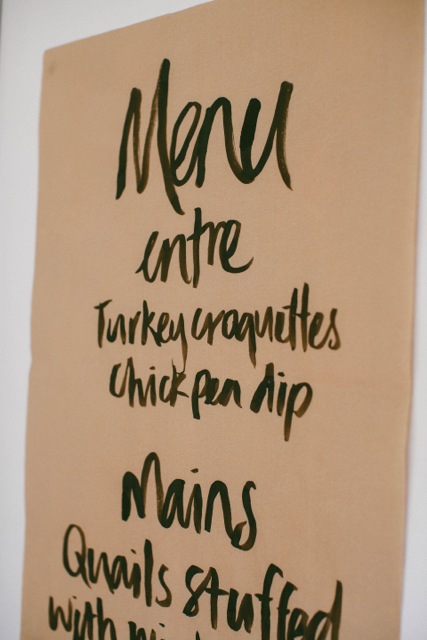 Menu
entre
Turkey croquettes
Chick pea dip
Mains
Quails stuffed
with